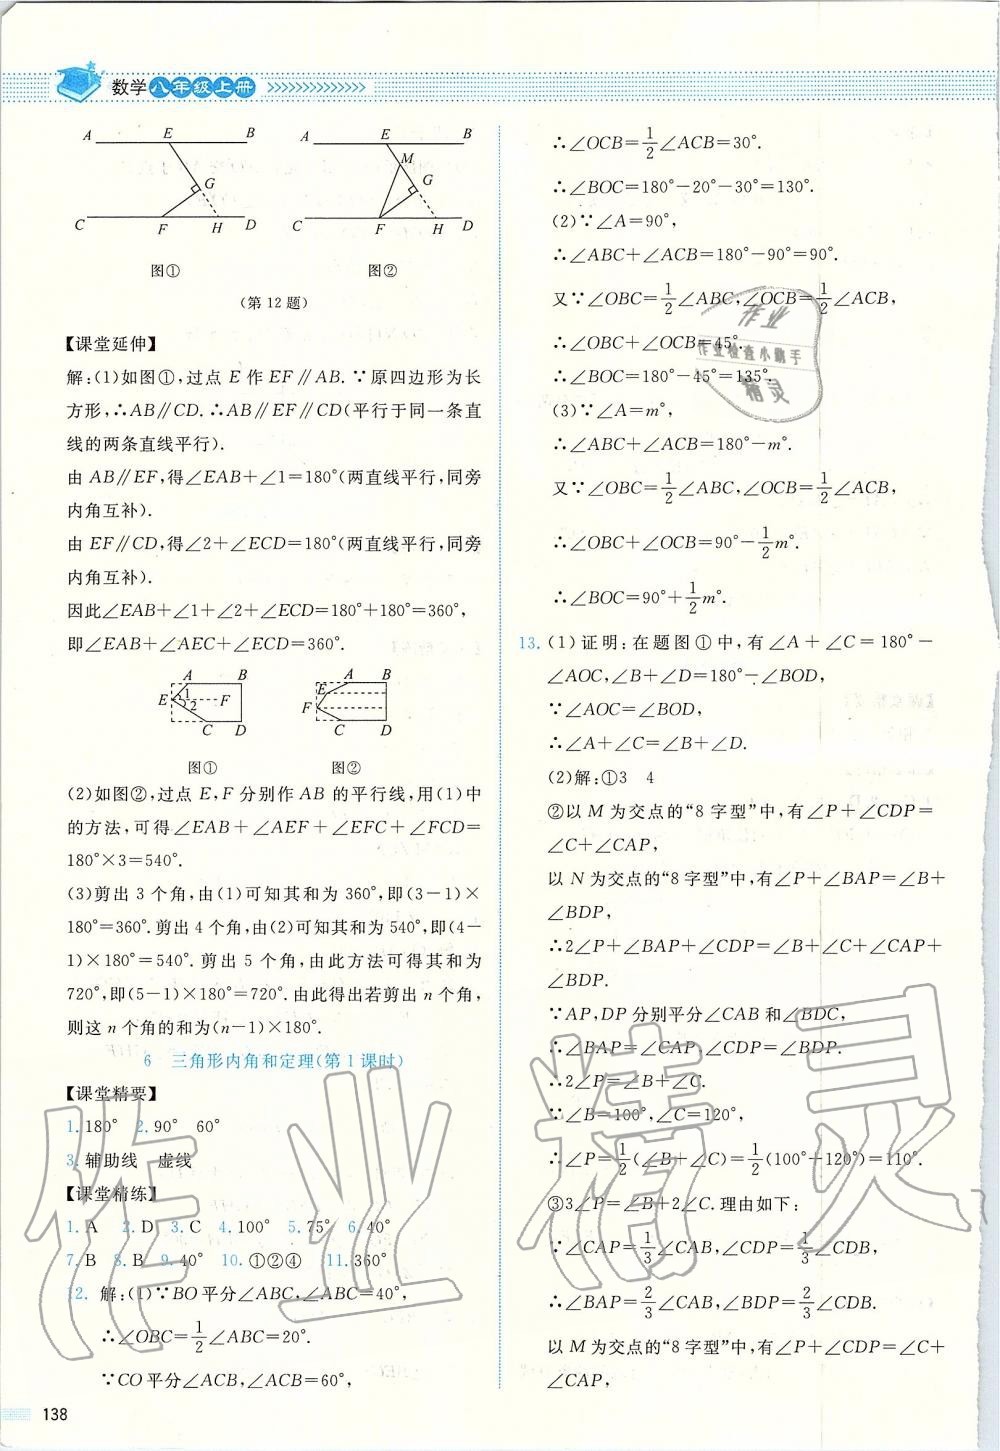 数学八年级上册
A E B
G
C F H D
图①
A E B
M
G
C F H D
图②
(第12题)
【课堂延伸】
解:(1)如图①,过点E作EF∥AB.∵原四边形为长
方形,∴AB∥CD.∴AB∥EF∥CD(平行于同一条直
线的两条直线平行).
由AB∥EF,得∠EAB+∠1=180°(两直线平行,同旁
内角互补).
由EF∥CD,得∠2+∠ECD=180°(两直线平行,同旁
内角互补).
因此∠EAB+∠1+∠2+∠ECD=180°+180°=360°,
即∠EAB+∠AEC+∠ECD=360°.
A B
E 1 F
2
C D
图①
A B
E
F
C D
图②
(2)如图②,过点E,F分别作AB的平行线,用(1)中
的方法,可得∠EAB+∠AEF+∠EFC+∠FCD=
180°×3=540°.
(3)剪出3个角,由(1)可知其和为360°,即(3-1)×
180°=360°.剪出4个角,由(2)可知其和为540°,即(4-
1)×180°=540°.剪出5个角,由此方法可得其和为
720°,即(5-1)×180°=720°.由此得出若剪出n个角,
则这n个角的和为(n-1)×180°.
6 三角形内角和定理(第1课时)
【课堂精要】
1.180° 2.90° 60°
3.辅助线 虚线
【课堂精练】
1.A 2.D 3.C 4.100° 5.75° 6.40°
7.B 8.B 9.40° 10.①②④ 11.360°
12. 解:(1)∵BO平分∠ABC,∠ABC=40°,
∴∠OBC=1/2∠ABC=20°.
∵CO平分∠ACB,∠ACB=60°,
138
∴∠OCB=1/2∠ACB=30°.
∴∠BOC=180°-20°-30°=130°.
(2)∵∠A=90°,
∴∠ABC+∠ACB=180°-90°=90°.
又∵∠OBC=1/2∠ABC,∠OCB=1/2∠ACB,
∴∠OBC+∠OCB=45°.
∴∠BOC=180°-45°=135°.
(3)∵∠A=m°,
∴∠ABC+∠ACB=180°-m°.
又∵∠OBC=1/2∠ABC,∠OCB=1/2∠ACB,
∴∠OBC+∠OCB=90°-1/2m°.
∴∠BOC=90°+1/2m°.
13.(1)证明:在题图①中,有∠A+∠C=180°-
∠AOC,∠B+∠D=180°-∠BOD,
∵∠AOC=∠BOD,
∴∠A+∠C=∠B+∠D.
(2)解:①3 4
②以M为交点的“8字型”中,有∠P+∠CDP=
∠C+∠CAP,
以N为交点的“8字型”中,有∠P+∠BAP=∠B+
∠BDP,
∴2∠P+∠BAP+∠CDP=∠B+∠C+∠CAP+
∠BDP.
∵AP,DP分别平分∠CAB和∠BDC,
∴∠BAP=∠CAP,∠CDP=∠BDP.
∴2∠P=∠B+∠C.
∵∠B=100°,∠C=120°,
∴∠P=1/2(∠B+∠C)=1/2(100°+120°)=110°.
③3∠P=∠B+2∠C.理由如下:
∵∠CAP=1/3∠CAB,∠CDP=1/3∠CDB,
∴∠BAP=2/3∠CAB,∠BDP=2/3∠CDB.
以M为交点的“8字型”中,有∠P+∠CDP=∠C+
∠CAP,
作业
作业检查小帮手
精灵
作业精灵